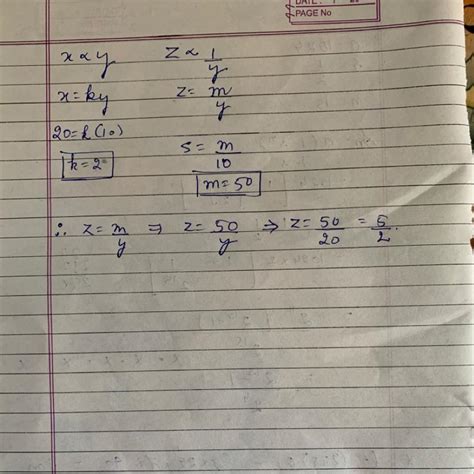 DATE: / 20
PAGE No
x ∝ y    z ∝ 1/y
x = ky    z = m/y
20 = k(10)
k = 2    5 = m/10
m = 50
∴ z = m/y ⇒ z = 50/y ⇒ z = 50/20 = 5/2.